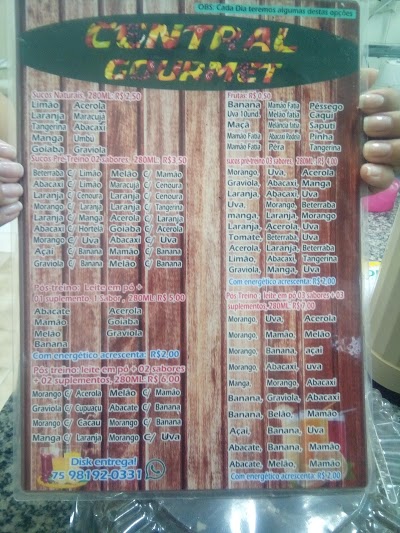 OBS: Cada Dia teremos algumas destas opções
CENTRAL
GOURMET
Sucos Naturais, 280ML: R$2,50
Limão Acerola
Laranja Maracujá
Tangerina Abacaxi
Manga Umbu
Goiaba Graviola
Sucos Pré-Treino 02 sabores, 280ML: R$ 3,50
Beterraba C/ Limão
Abacaxi C/ Limão
Morango C/ Laranja
Laranja C/ Limão
Laranja C/ Manga
Abacaxi C/ Hortelã
Abacaxi C/ Uva
Açaí C/ Banana
Graviola C/ Melão
Melão C/ Mamão
Maracujá C/ Cenoura
Laranja C/ Cenoura
Morango C/ Tangerina
Acerola C/ Laranja
Goiaba C/ Acerola
Abacaxi C/ Uva
Mamão C/ Banana
Melão C/ Banana
Pós-Treino: Leite em pó +
01 suplemento, 1 Sabor, 280ML: R$ 5,00
Abacate Acerola
Mamão Goiaba
Melão Graviola
Banana
Com energético acrescenta: R$2,00
Pós treino: leite em pó + 02 sabores
+ 02 suplementos, 280ML: R$ 6,00
Morango C/ Acerola Melão C/ Mamão
Graviola C/ Cupuaçu Abacate C/ Banana
Morango C/ Cacau Morango C/ Banana
Manga C/ Laranja Morango C/ Uva
Disk entrega!
75 98192-0331
Frutas: R$ 0,50
Banana Mamão Fatia Pêssego
Uva 10und. Melão Fatia Caqui
Maçã Melancia Fatia Sapuri
Mamão Fatia Abacaxi Rodela Pinha
Mamão Fatia Pêra Tangerina
sucos pré-treino 03 sabores, 280ML: R$ 4,00
Morango, Uva, Acerola
Graviola, Abacaxi, Manga
Laranja, Abacaxi, Uva
Uva, Laranja, Morango
manga, Laranja, Morango
Laranja, Acerola, Uva
Tomate, Beterraba, Uva
Acerola, Laranja, Beterraba
Limão, Abacaxi, Tangerina
Graviola, Manga, Uva
Com energético acrescenta: R$2,00
Pós Treino: leite em pó 03 sabores + 03
suplementos, 280ML: R$7,00
Morango, Uva, Acerola
Morango, Mamão, Melão
Morango, Banana, açaí
Morango, Abacaxi, uva
Manga, Morango, Abacaxi
Banana, Graviola, Abacaxi
Banana, Belão, Mamão
Açaí, Banana, Uva
Abacate, Banana, Mamão
Abacate, Melão, Mamão
Com energético acrescenta: R$ 2,00